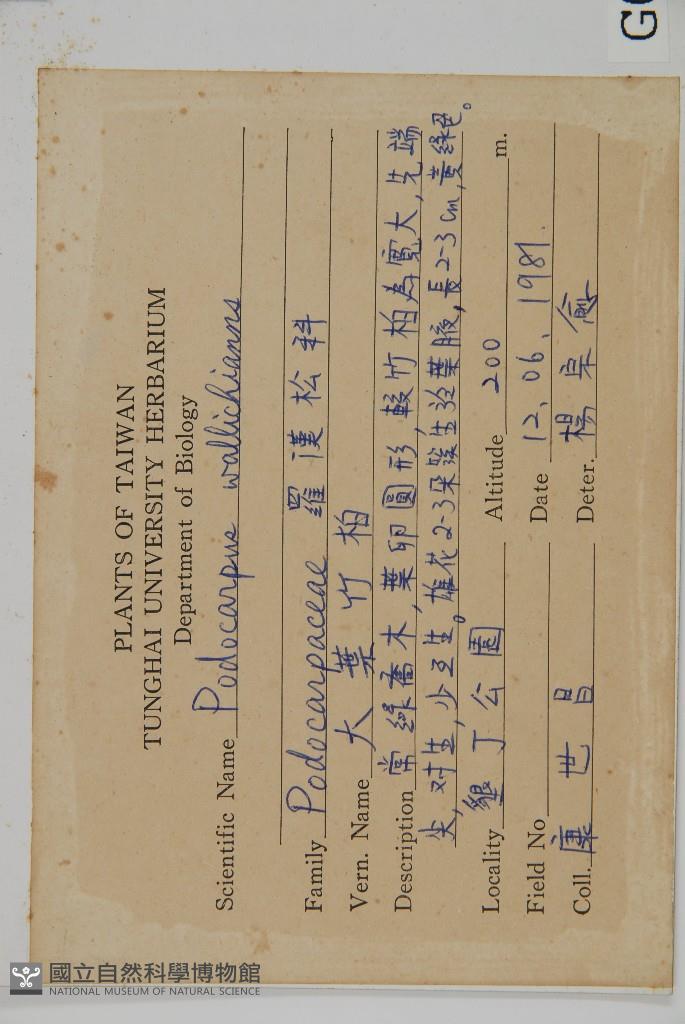 PLANTS OF TAIWAN
TUNGHAI UNIVERSITY HERBARIUM
Department of Biology
Scientific Name Podocarpus wallichianns
Family Podocarpaceae 羅漢松科
Vern. Name 大葉竹柏
Description 常綠喬木,葉卵圓形,較竹柏為寬大,先端
尖,对生,少互生。雄花2-3朵簇生於葉腋,長2-3cm,黃綠色。
Locality 墾丁公園 Altitude 200 m.
Field No Date 12.06.1981.
Coll. 康世昌 Deter. 楊宗愈
國立自然科學博物館
NATIONAL MUSEUM OF NATURAL SCIENCE